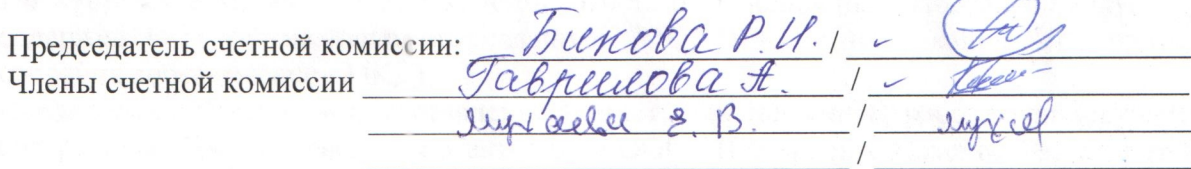 Председатель счетной комиссии: Бикова Р.И. /
Члены счетной комиссии Гаврилова А. /
Мухаева Е. В. /
/